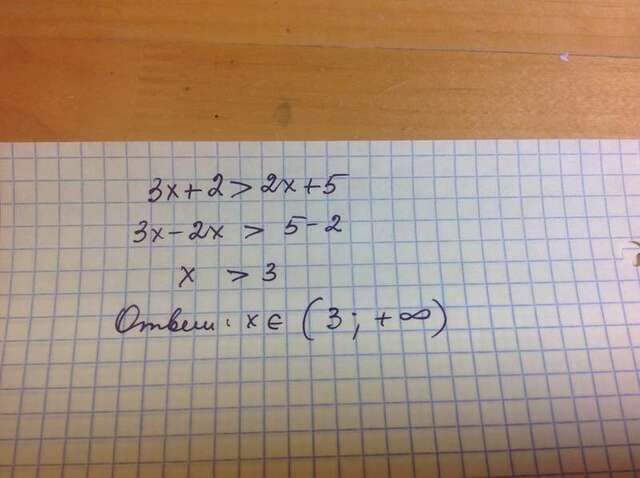 3x+2>2x+5
3x-2x > 5-2
x > 3
Ответ: x ∈ (3; +∞)